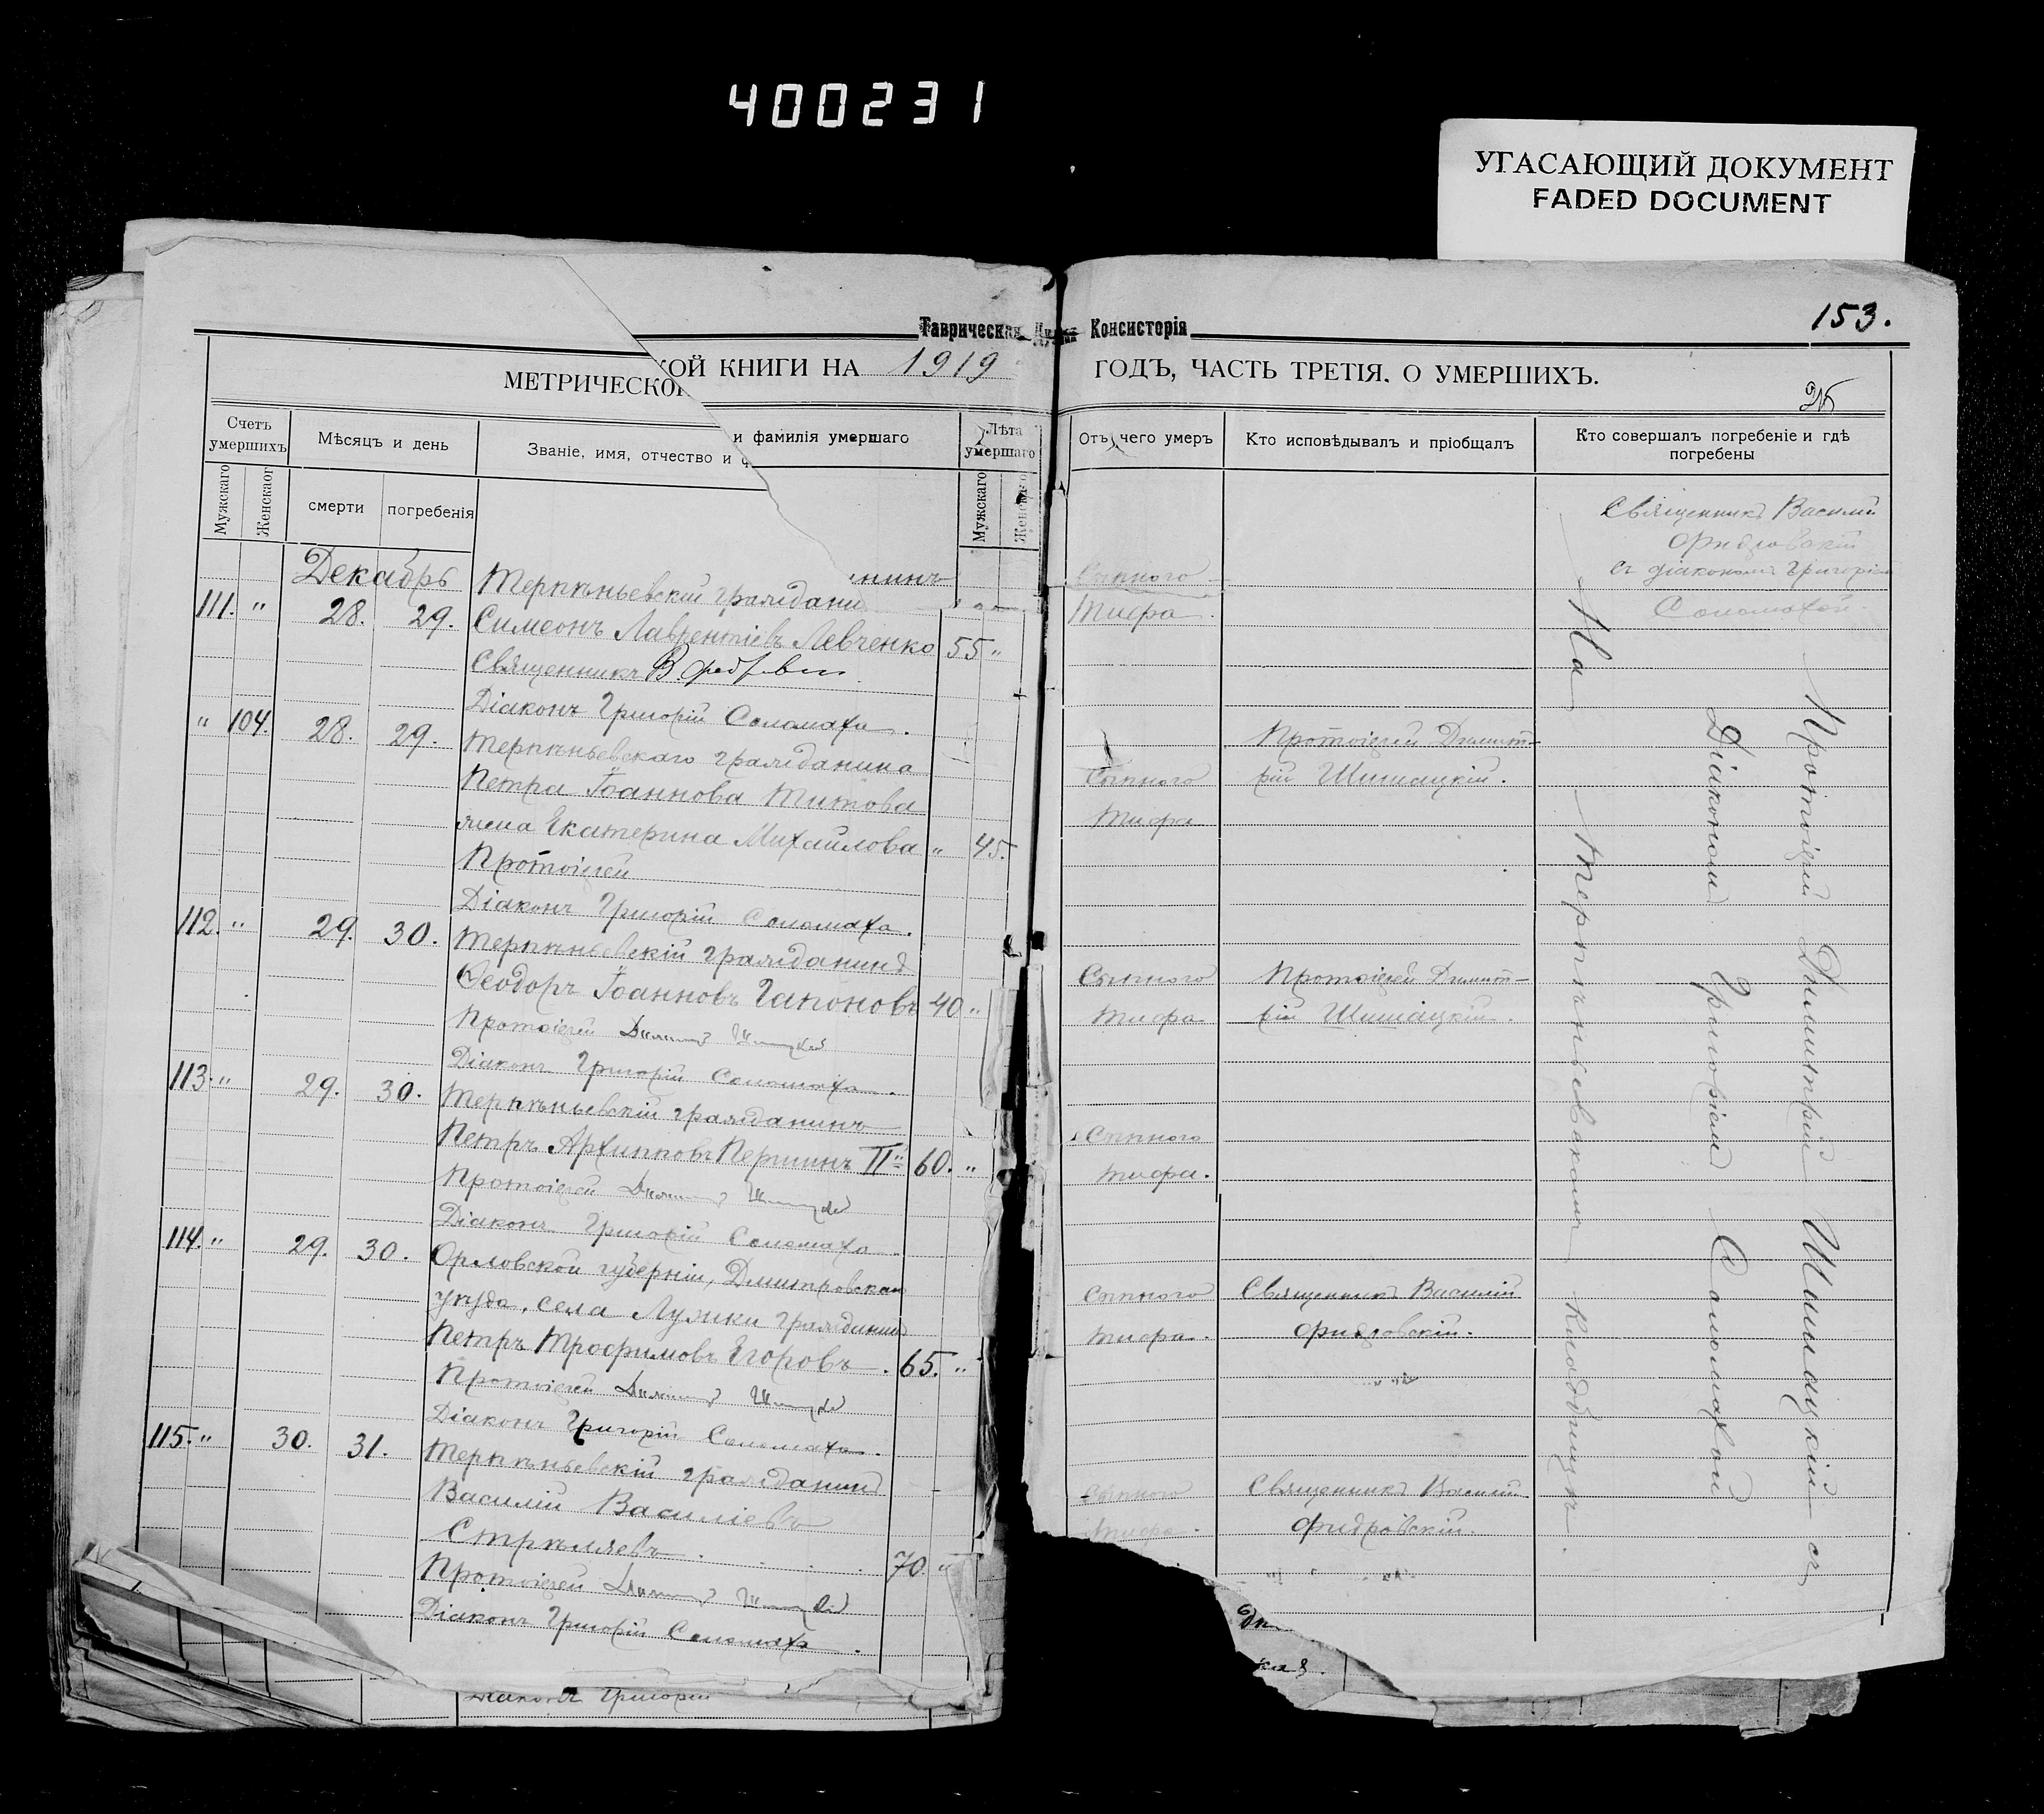 400231
УГАСАЮЩИЙ ДОКУМЕНТ
FADED DOCUMENT
Таврическая Консисторія
153.
МЕТРИЧЕСКОЙ КНИГИ НА 1919 ГОДЪ, ЧАСТЬ ТРЕТІЯ. О УМЕРШИХЪ.
Счетъ умершихъ
Мужскаго
Женскаог
Мѣсяцъ и день
смерти
погребенія
Званіе, имя, отчество и фамилія умершаго
Лѣта умершаго
Мужскаго
Женскаго
Отъ чего умеръ
Кто исповѣдывалъ и пріобщалъ
Кто совершалъ погребеніе и гдѣ
погребены
Декабрь
111. " 28. 29.
Терпѣньевскій гражданинъ
Симеонъ Лаврентіевъ Левченко 55 "
Священникъ В.
Діаконъ Григорій Соломаха.
Сыпного
Тифа.
Священникъ Василій
съ діакономъ Григоріемъ
Соломахой.
" 104. 28. 29.
Терпѣньевскаго гражданина
Петра Іоаннова Титова
жена Екатерина Михайлова " 45.
Протоіерей
Діаконъ Григорій Соломаха.
Сыпного
Тифа
Протоіерей Димит-
рій Шишацкій.
112. " 29. 30.
Терпѣньевскій гражданинъ
Ѳеодоръ Іоанновъ Гапоновъ 40 "
Протоіерей Димитрій Шишацкій
Діаконъ Григорій Соломаха.
Сыпного
Тифа
Протоіерей Димит-
рій Шишацкій.
113. " 29. 30.
Терпѣньевскій гражданинъ
Петръ Архипповъ Першинъ IIй 60. "
Протоіерей Димитрій Шишацкій
Діаконъ Григорій Соломаха.
Сыпного
Тифа.
114. " 29. 30.
Орловской губерніи, Дмитровскаго
уѣзда, села Лужки гражданинъ
Петръ Трофимовъ Егоровъ. 65. "
Протоіерей Димитрій Шишацкій
Діаконъ Григорій Соломаха.
Сыпного
Тифа.
Священникъ Василій
Фидровскій.
115. " 30. 31.
Терпѣньевскій гражданинъ
Василій Васильевъ
Стрѣляевъ. 70. "
Протоіерей Димитрій Шишацкій
Діаконъ Григорій Соломаха.
Сыпного
Тифа.
Священникъ Василій
Фидровскій.
Протоіерей Димитрій Шишацкій съ
Діакономъ Григоріемъ Соломахой
На Терпѣньевскомъ кладбищѣ.
Діаконъ Григорій